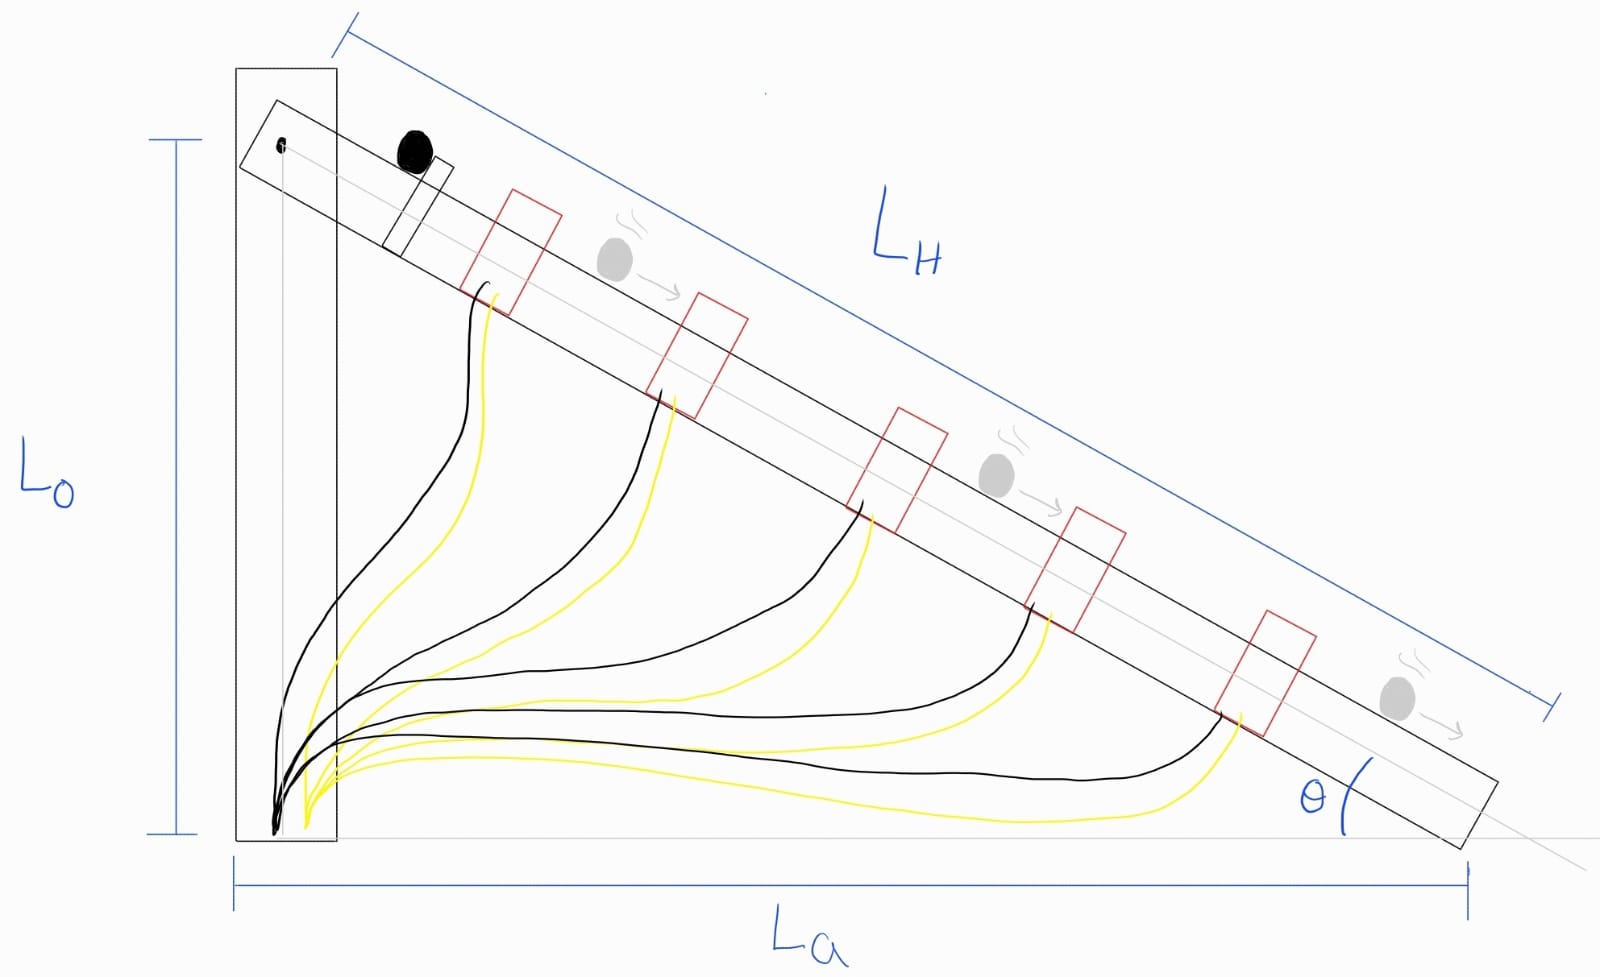 L_H
L_O
θ
L_a